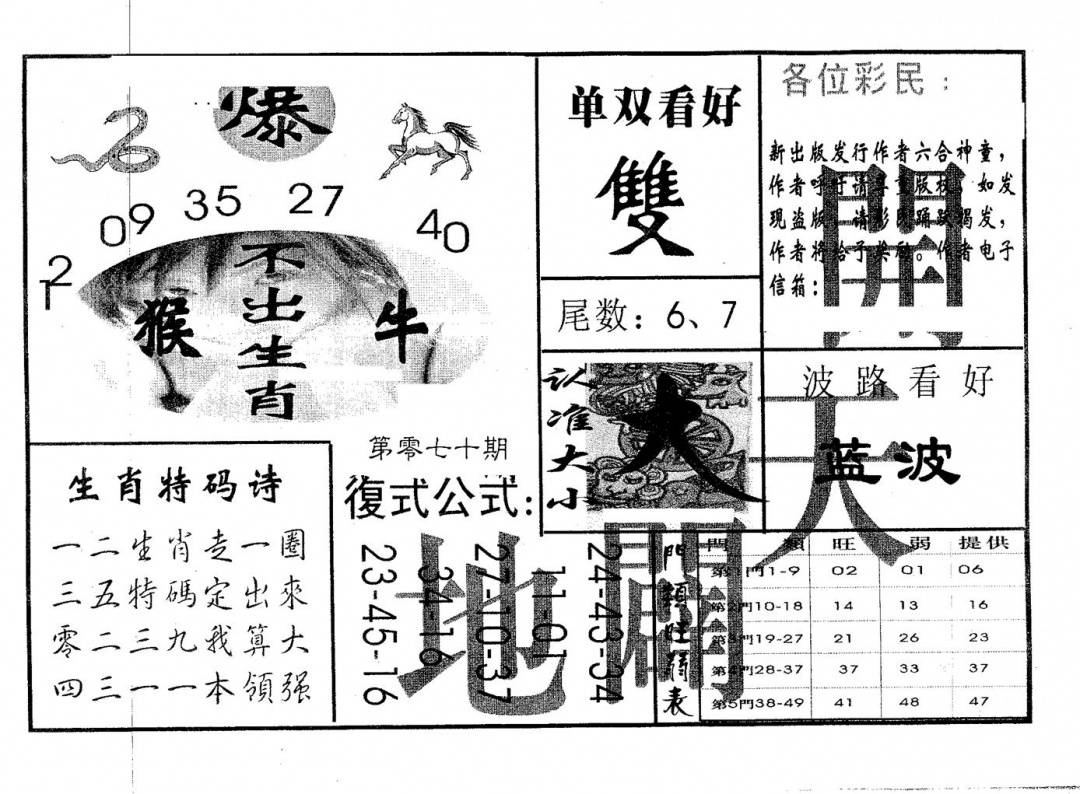 爆
09 35 27 40
12
不出生肖
猴
牛
单双看好
雙
尾数：6、7
各位彩民：
新出版发行作者六合神童，
作者呼吁请尊重版权。如发
现盗版，请彩民踊跃揭发，
作者将给予奖励。作者电子
信箱：
認准大小
大
波路看好
蓝波
開天
闢地
生肖特码诗
一二生肖走一圈
三五特碼定出來
零二三九我算大
四三一一本領强
第零七十期
復式公式：
23-45-16
34-16
27-10-37
11-01
24-43-34
門類旺弱表
門類 旺 弱 提供
第1門1-9 02 01 06
第2門10-18 14 13 16
第3門19-27 21 26 23
第4門28-37 37 33 37
第5門38-49 41 48 47